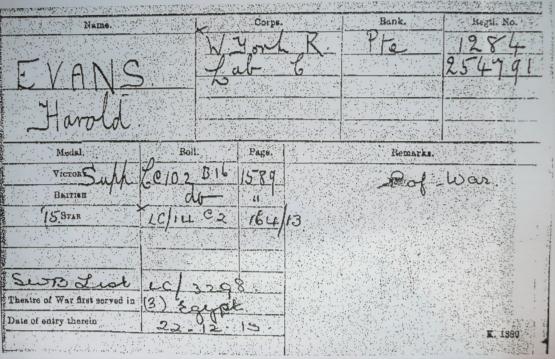 Name. Corps. Rank. Regtl. No.
EVANS W York R. Pte 1284
Harold Lab C 254791
Medal. Roll. Page. Remarks.
VICTORY Supp LC102 B16 1589 P of War.
BRITISH do "
'15 STAR LC/14 C2 164/13
SWB List LC/3298
Theatre of War first served in (3) Egypt
Date of entry therein 22.12.15
K. 1380